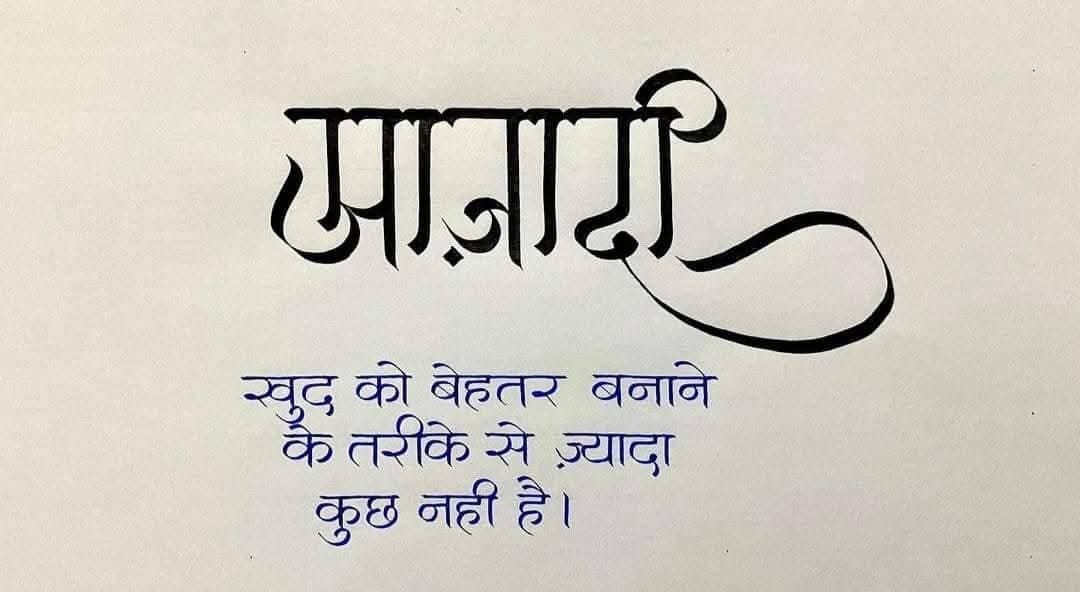 आज़ादी
खुद को बेहतर बनाने
के तरीके से ज़्यादा
कुछ नही है।